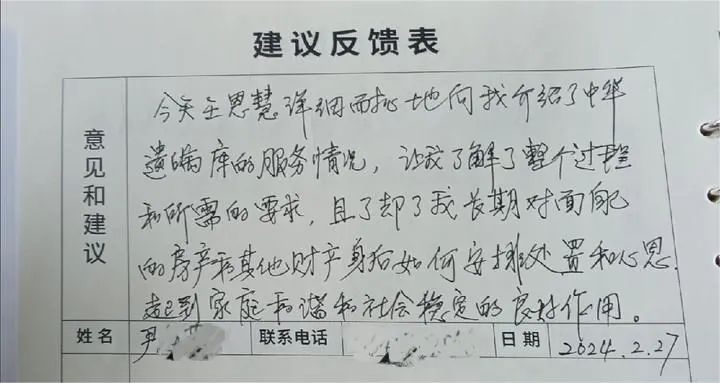 建议反馈表
意见和建议
今天王思慧详细而地向我介绍了中华
遗嘱库的服务情况，让我了解了整个过程
和所需的要求，且了却了我长期对面自己
的房产和其他财产身后如何安排处置和心思.
起到家庭和谐和社会稳定的良好作用。
姓名 尹 联系电话 日期 2024.2.27